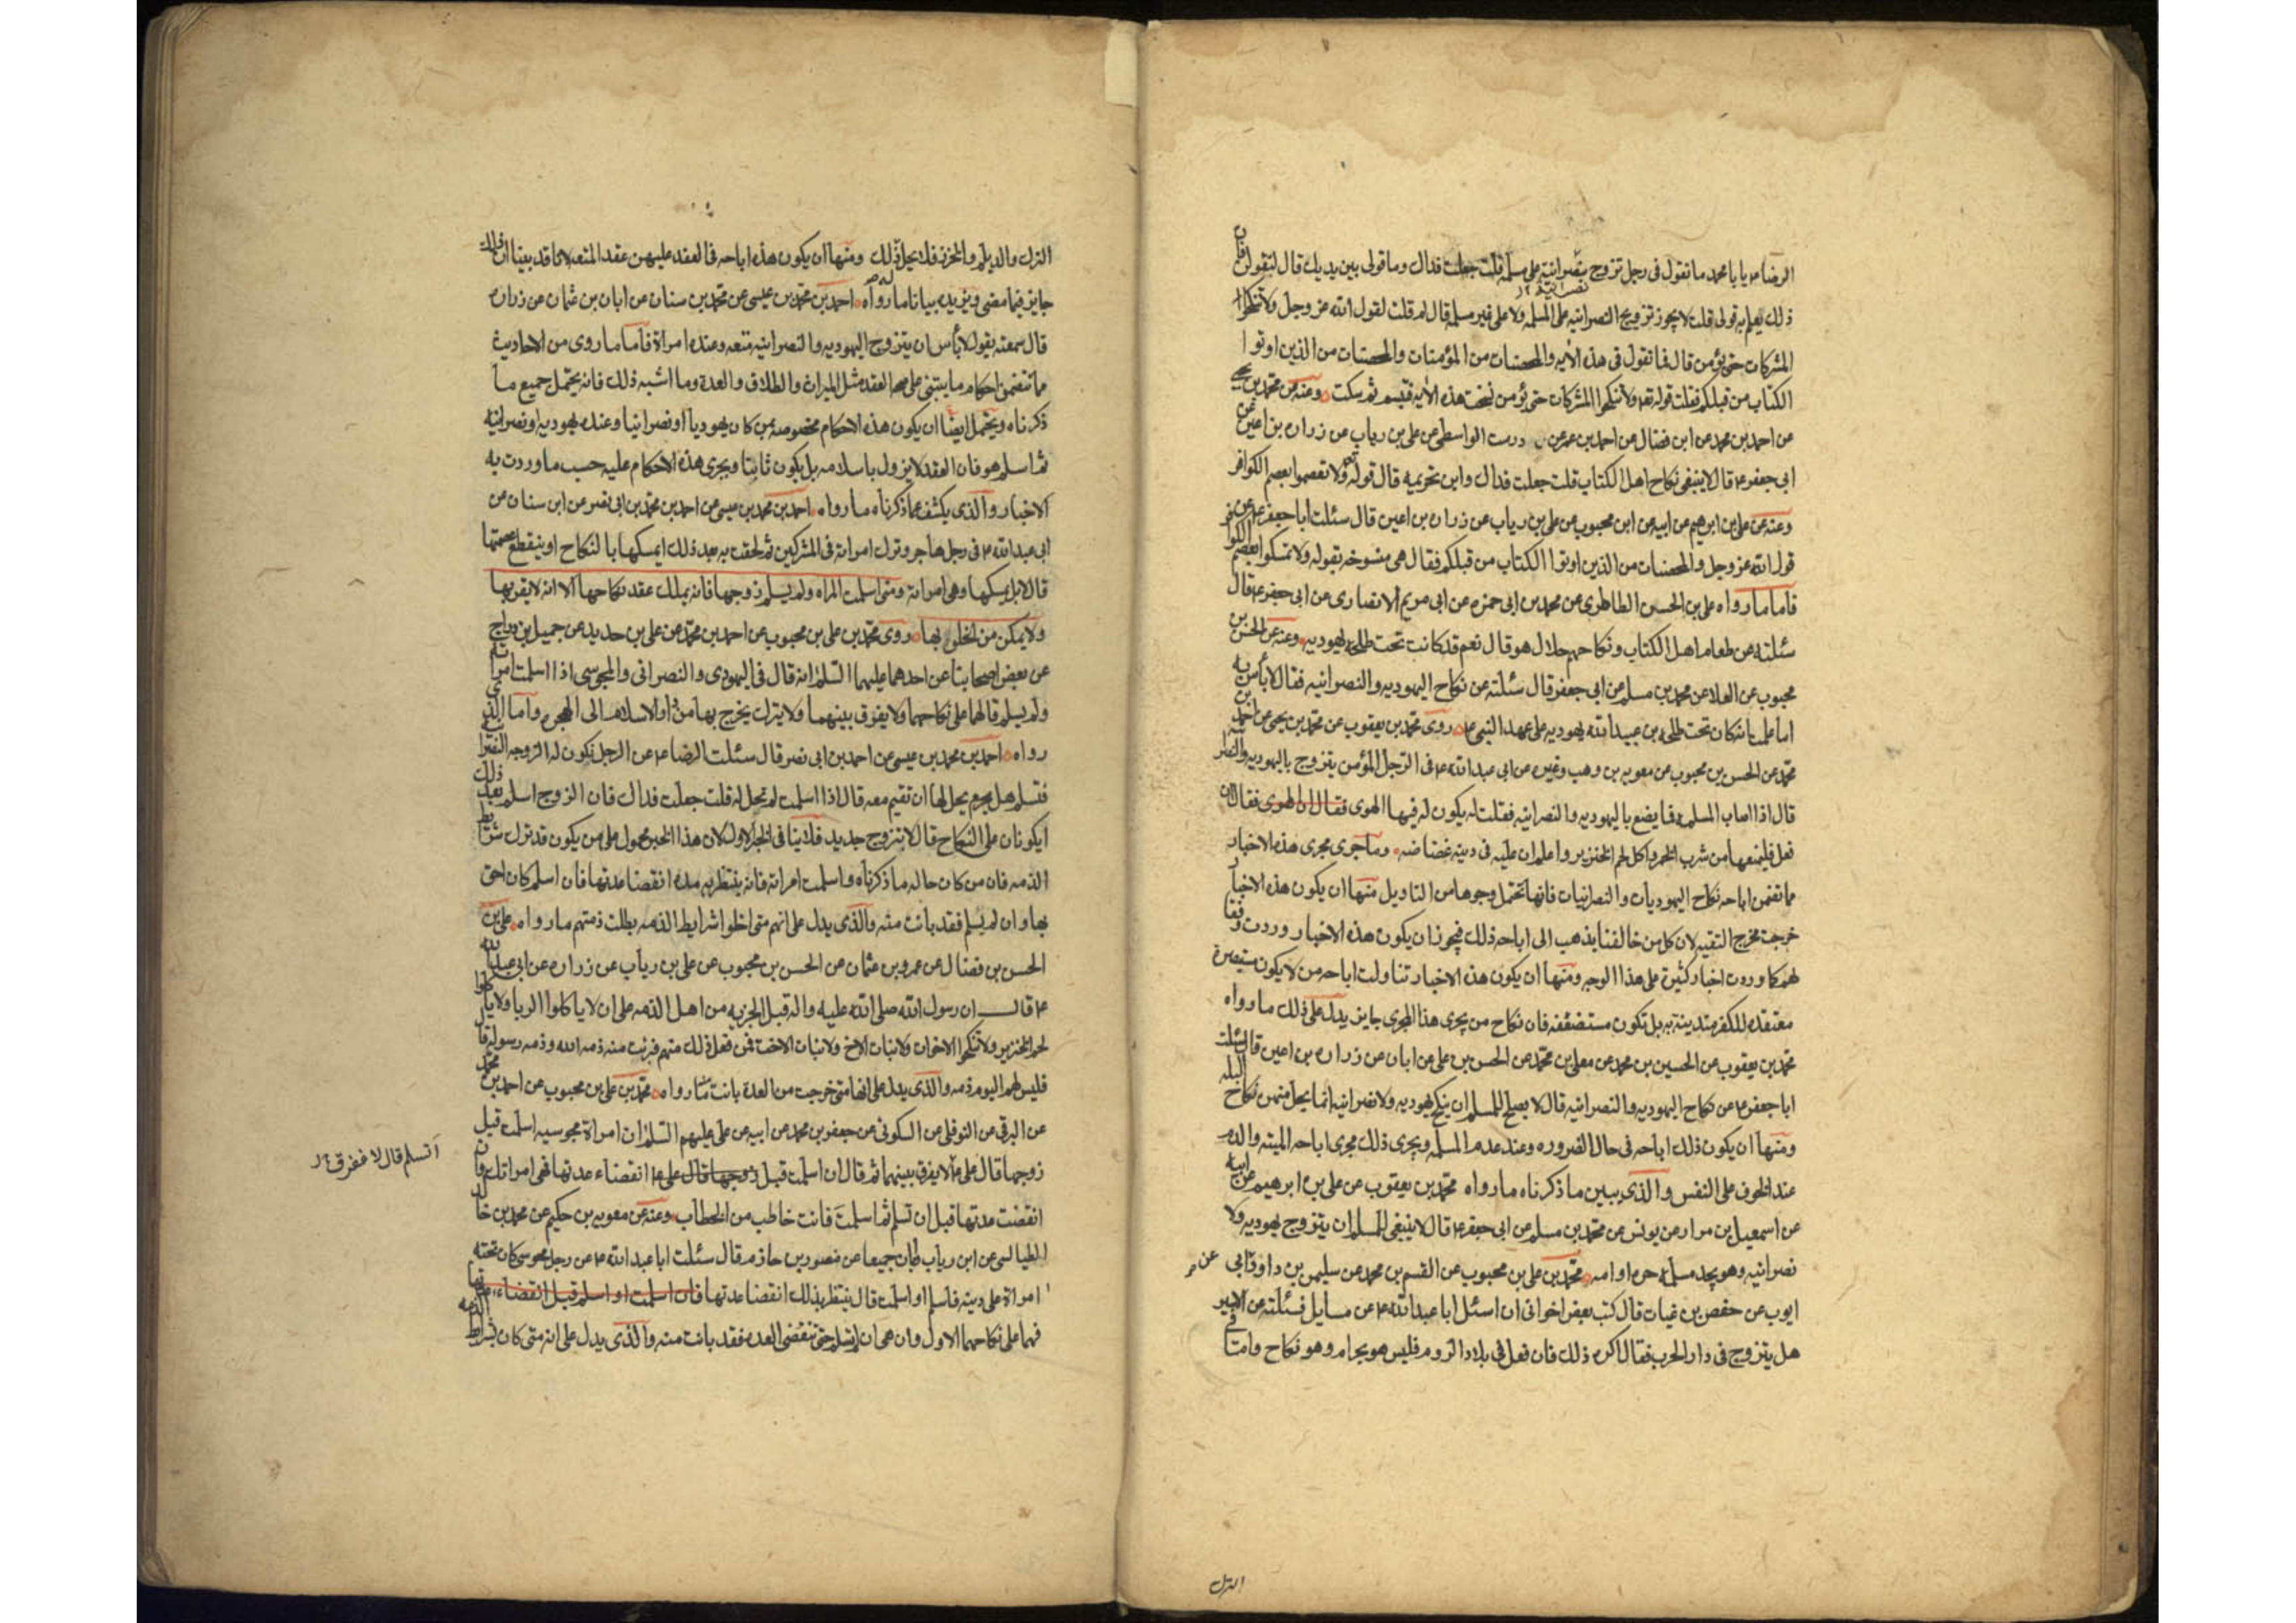 الرضا ع يا با محمد ما تقول فى رجل تزوج بنصرانيه على مسلمة قلت جعلت فداك وما قولى بين يديك قال لتقولن فان
نصرانيه
ذلك يعلم به قولى قلت لا يجوز تزويج النصرانيه على المسلمه ولا على غير مسلمه قال لم قلت لقول الله عز وجل ولا تنكحوا
المشركات حتى يؤمن قال فما تقول فى هذه الايه والمحصنات من المؤمنات والمحصنات من الذين اوتوا
الكتاب من قبلكم فقلت قوله تع ولا تنكحوا المشركات حتى يؤمن نسخت هذه الايه فتبسم ثم سكت وعنه عن محمد بن يحيى
عن احمد بن محمد عن ابن فضال عن احمد بن عمر عن درست الواسطى عن على بن رياب عن زراره بن اعين عن
ابى جعفر ع قال لا ينبغى نكاح اهل الكتاب قلت جعلت فداك واين تحريمه قال قوله تع ولا تمسكوا بعصم الكوافر
وعنه عن على بن ابرهيم عن ابيه عن ابن محبوب عن على بن رياب عن زراره بن اعين قال سئلت ابا جعفر ع عن
قول الله عز وجل والمحصنات من الذين اوتوا الكتاب من قبلكم فقال هى منسوخه بقوله ولا تمسكوا بعصم الكوافر
فاما ما رواه على بن الحسن الطاطرى عن محمد بن ابى حمزه عن ابى مريم الانصارى عن ابى جعفر ع قال
سئلته عن طعام اهل الكتاب ونكاحهم حلال هو قال نعم قد كانت تحت طلحه يهوديه وعنه عن الحسن بن
محبوب عن العلا عن محمد بن مسلم عن ابى جعفر قال سئلته عن نكاح اليهوديه والنصرانيه فقال لا بأس به
اما علمت انه كان تحت طلحه بن عبيد الله يهوديه على عهد النبى ع روى محمد بن يعقوب عن محمد بن يحيى عن احمد بن
محمد عن الحسن بن محبوب عن معويه بن وهب وغيره عن ابى عبد الله ع فى الرجل المؤمن يتزوج باليهوديه والنصرانيه
قال اذا اصاب المسلمه فما يضع باليهوديه والنصرانيه فقلت له يكون له فيها الهوى فقال ان الهوى فقال ان
فعل فليمنعها من شرب الخمر واكل لحم الخنزير واعلم ان عليه فى دينه غضاضه وما جرى مجرى هذه الاخبار
مما تضمن اباحه نكاح اليهوديات والنصرانيات فانها تحتمل وجوها من التاويل منها ان يكون هذه الاخبار
خرجت مخرج التقيه لان كل من خالفنا يذهب الى اباحه ذلك فيجوز ان يكون هذه الاخبار وردت وفقا
لهم كما وردت اخبار كثيرة على هذا الوجه ومنها ان يكون هذه الاخبار تناولت اباحه من لا يكون مستبصرة
معتقده للكفر متدينة به بل تكون مستضعفه فان نكاح من يجرى هذا المجرى جايز يدل على ذلك ما رواه
محمد بن يعقوب عن الحسين بن محمد عن معلى بن محمد عن الحسن بن على عن ابان عن زراره بن اعين قال سئلت
ابا جعفر ع عن نكاح اليهوديه والنصرانيه قال لا يصلح للمسلم ان ينكح يهوديه ولا نصرانيه انما يحل منهن نكاح البله
ومنها ان يكون ذلك اباحه فى حال الضروره وعند عدم المسلمه ويجرى ذلك مجرى اباحه الميته والدم
عند الخوف على النفس والذى يبين ما ذكرناه ما رواه محمد بن يعقوب عن على بن ابرهيم عن ابيه
عن اسمعيل بن مرار عن يونس عن محمد بن مسلم عن ابى جعفر ع قال لا ينبغى للمسلم ان يتزوج يهوديه ولا
نصرانيه وهو يجد مسلمه حره او امه محمد بن على بن محبوب عن القسم بن محمد عن سليمن بن داود ابى
عن
ايوب عن حفص بن غياث قال كتب بعض اخوانى ان اسئل ابا عبد الله ع عن مسايل فسئلته عن الاسير
هل يتزوج فى دار الحرب فقال اكره ذلك فان فعل فى بلاد الروم فليس هو بحرام وهو نكاح واما فى
الترك
الترك والديلم والخزر فلا يحل ذلك ومنها ان يكون هذه اباحه فى العقد عليهن عقد المتعه لما قد بينا ان ذلك
جايز فيما مضى ويزيده بيانا ما رواه احمد بن محمد بن عيسى عن محمد بن سنان عن ابان بن عثمان عن زراره
قال سمعته يقول لا بأس ان يتزوج اليهوديه والنصرانيه متعه وعنده امراة فاما ما روى من الاحاديث
مما تتضمن احكام ما يبتنى على صحه العقد مثل الميراث والطلاق والعدة وما اشبه ذلك فانه يحتمل جميع ما
ذكرناه ويحتمل ايضا ان يكون هذه الاحكام مخصوصه بمن كان يهوديا او نصرانيا وعنده يهوديه او نصرانيه
ثم اسلم هو فان العقد لا يزول باسلامه بل يكون ثابتا ويجرى هذه الاحكام عليه حسب ما وردت به
الاخبار والذى يكشف عما ذكرناه ما رواه احمد بن محمد بن عيسى عن احمد بن محمد بن ابى نصر عن ابن سنان عن
ابى عبد الله ع فى رجل هاجر وترك امراته فى المشركين ثم لحقت به بعد ذلك ايمسكها بالنكاح او ينقطع عصمتها
قال لا بل يمسكها وهى امراته ومتى اسلمت المراه ولم يسلم زوجها فانه يملك عقد نكاحها الا انه لا يقربها
ولا يمكن من الخلو بها روى محمد بن على بن محبوب عن احمد بن محمد عن على بن حديد عن جميل بن دراج
عن بعض اصحابنا عن احدهما عليهما السلم انه قال فى اليهودى والنصرانى والمجوسى اذا اسلمت امراته
ولم يسلم قال هما على نكاحهما ولا يفرق بينهما ولا يترك يخرج بها من دار الاسلام الى الهجره واما الذى
رواه احمد بن محمد بن عيسى عن احمد بن ابى نصر قال سئلت الرضا ع عن الرجل تكون له الزوجه النصرانيه
فتسلم هل يحل لها ان تقيم معه قال اذا اسلمت لم تحل له قلت جعلت فداك فان الزوج اسلم بعد ذلك
ايكونان على النكاح قال لا بتزوج جديد فلا ينافى الخبر الاول لان هذا الخبر محمول على من يكون قد ترك شرايط
الذمه فان من كان حاله ما ذكرناه واسلمت امراته فانه ينتظر به مده انقضا عدتها فان اسلم كان احق
بها وان لم يسلم فقد بانت منه والذى يدل على انهم متى اخلوا شرايط الذمه بطلت ذمتهم ما رواه على بن
الحسن بن فضال عن عمرو بن عثمان عن الحسن بن محبوب عن على بن رياب عن زراره عن ابى عبد الله
ع قال ان رسول الله صلى الله عليه واله قبل الجزيه من اهل الذمه على ان لا ياكلوا الربا ولا ياكلوا
لحم الخنزير ولا ينكحوا الاخوات ولا بنات الاخ ولا بنات الاخت فمن فعل ذلك منهم فبرئت منه ذمه الله وذمه رسوله قال
فليس لهم اليوم ذمه والذى يدل على انها متى خرجت من العدة بانت منه ما رواه محمد بن على بن محبوب عن احمد بن محمد
عن البرقى عن النوفلى عن السكونى عن جعفر بن محمد عن ابيه عن على عليهم السلم ان امراة مجوسيه اسلمت قبل
زوجها قال على ع لا يفرق بينهما ثم قال ان اسلمت قبل زوجها قال على ع انقضاء عدتها فهى امراتك وان
اتسلم قال لا ففرق
انقضت عدتها قبل ان تسلم ثم اسلمت فانت خاطب من الخطاب وعنه عن معويه بن حكيم عن محمد بن خالد
الطيالسى عن ابن رياب وابان جميعا عن منصور بن حازم قال سئلت ابا عبد الله ع عن رجل مجوسى كان تحته
امراة على دينه فاسلم او اسلمت قال ينتظر بذلك انقضا عدتها فان اسلمت او اسلم قبل انقضاء عدتها
فهما على نكاحهما الاول وان هى ان لم تسلم حتى تنقضى العده فقد بانت منه والذى يدل على انه متى كان بشرايط الذمه